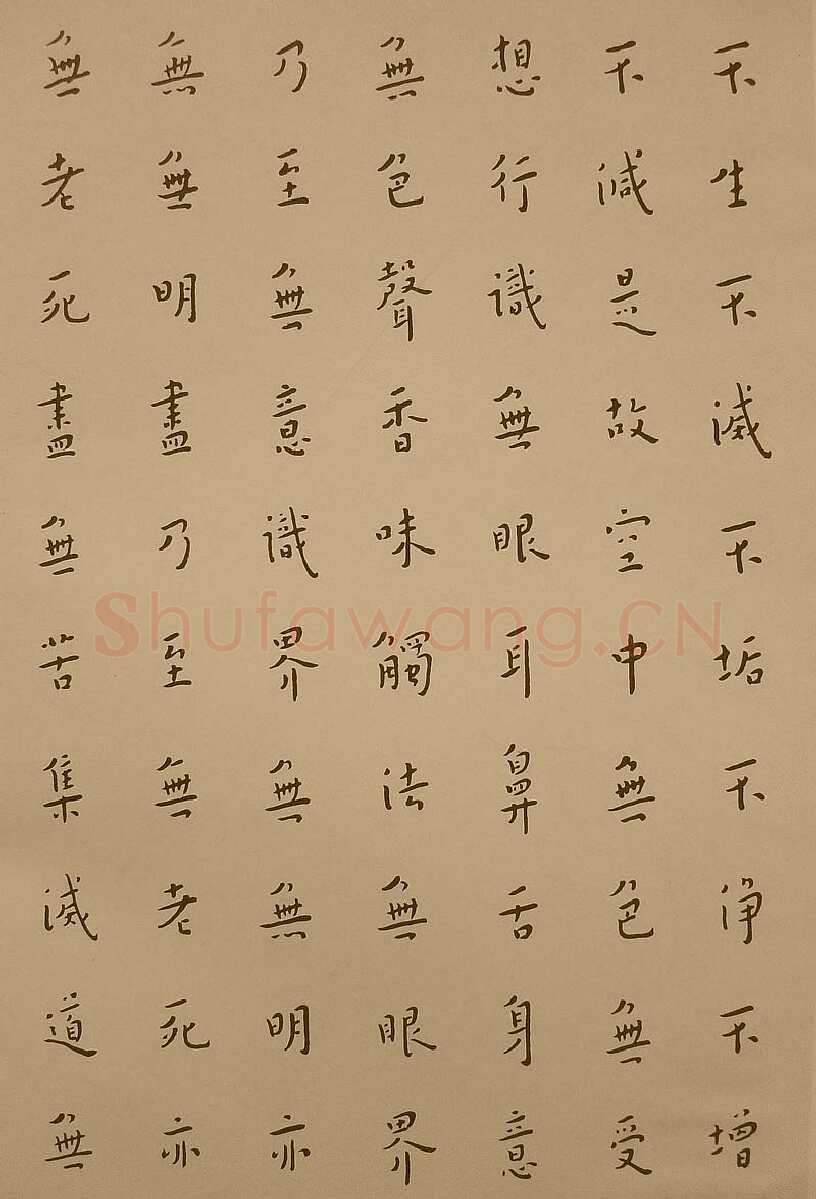 不生不滅不垢不净不增
不減是故空中無色無受
想行識無眼耳鼻舌身意
無色聲香味觸法無眼界
乃至無意識界無無明亦
無無明盡乃至無老死亦
無老死盡無苦集滅道無
Shufawang.CN